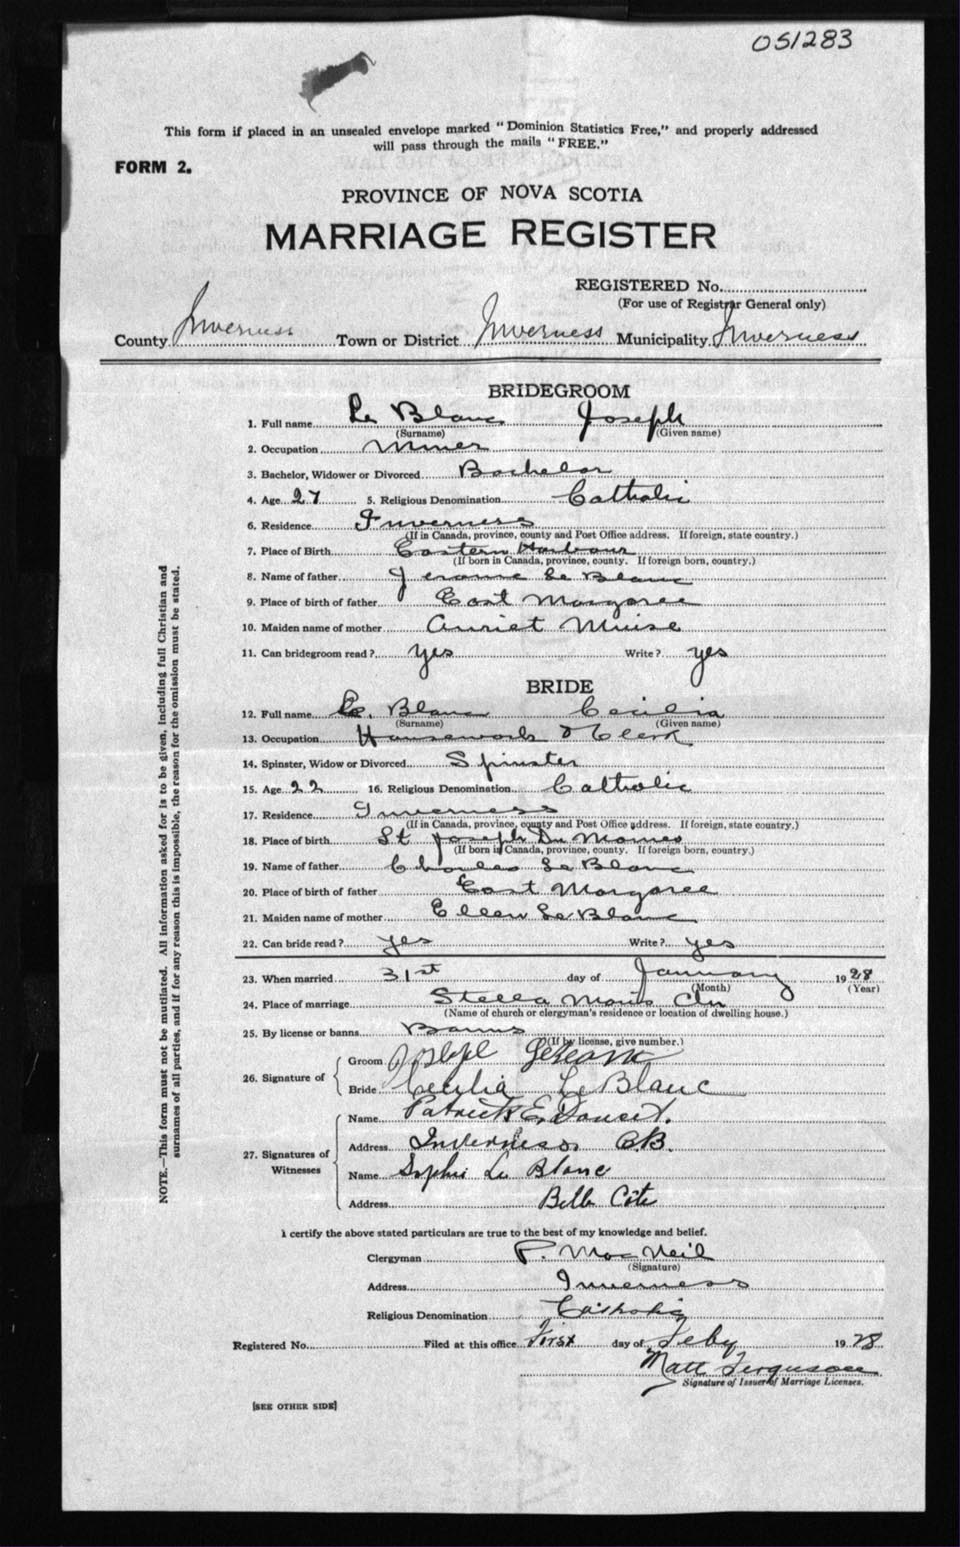 051283
This form if placed in an unsealed envelope marked "Dominion Statistics Free," and properly addressed
will pass through the mails "FREE."
FORM 2.
PROVINCE OF NOVA SCOTIA
MARRIAGE REGISTER
REGISTERED No.
(For use of Registrar General only)
County Inverness Town or District Inverness Municipality Inverness
BRIDEGROOM
1. Full name Le Blanc Joseph
(Surname) (Given name)
2. Occupation Miner
3. Bachelor, Widower or Divorced Bachelor
4. Age 27 5. Religious Denomination Catholic
6. Residence Inverness
(If in Canada, province, county and Post Office address. If foreign, state country.)
7. Place of Birth Eastern Harbour
(If born in Canada, province, county. If foreign born, country.)
8. Name of father Jerome Le Blanc
9. Place of birth of father East Margaree
10. Maiden name of mother Muise
11. Can bridegroom read? yes Write? yes
BRIDE
12. Full name Le Blanc Cecilia
(Surname) (Given name)
13. Occupation Housework & Clerk
14. Spinster, Widow or Divorced Spinster
15. Age 22 16. Religious Denomination Catholic
17. Residence Inverness
(If in Canada, province, county and Post Office address. If foreign, state country.)
18. Place of birth St Joseph Du Moines
(If born in Canada, province, county. If foreign born, country.)
19. Name of father Charles Le Blanc
20. Place of birth of father East Margaree
21. Maiden name of mother Ellen Le Blanc
22. Can bride read? yes Write? yes
23. When married 31st day of January 1928
(Month) (Year)
24. Place of marriage Stella Maris Chr
(Name of church or clergyman's residence or location of dwelling house.)
25. By license or banns Banns
(If by license, give number.)
26. Signature of
Groom Joseph
Bride Cecilia LeBlanc
27. Signatures of Witnesses
Name Patrick E. Doucet.
Address Inverness C.B.
Name Sophie Le Blanc
Address Belle Côte
I certify the above stated particulars are true to the best of my knowledge and belief.
Clergyman P. MacNeil
(Signature)
Address Inverness
Religious Denomination Catholic
Registered No. Filed at this office First day of Feby 1928
Matt Ferguson
Signature of Issuer of Marriage Licenses.
[SEE OTHER SIDE]
NOTE.—This form must not be mutilated. All information asked for is to be given, including full Christian and
surnames of all parties, and if for any reason this is impossible, the reason for the omission must be stated.